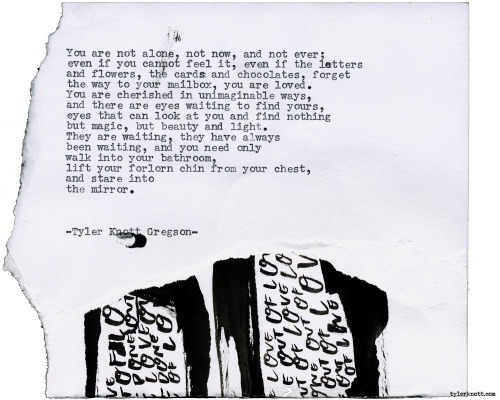 You are not alone, not now, and not ever;
even if you cannot feel it, even if the letters
and flowers, the cards and chocolates, forget
the way to your mailbox, you are loved.
You are cherished in unimaginable ways,
and there are eyes waiting to find yours,
eyes that can look at you and find nothing
but magic, but beauty and light.
They are waiting, they have always
been waiting, and you need only
walk into your bathroom,
lift your forlorn chin from your chest,
and stare into
the mirror.
-Tyler Knott Gregson-
LOVE OF LO
OUT LOVE LO
OF LOVE
OUT OF
OF LOVE
tylerknott.com